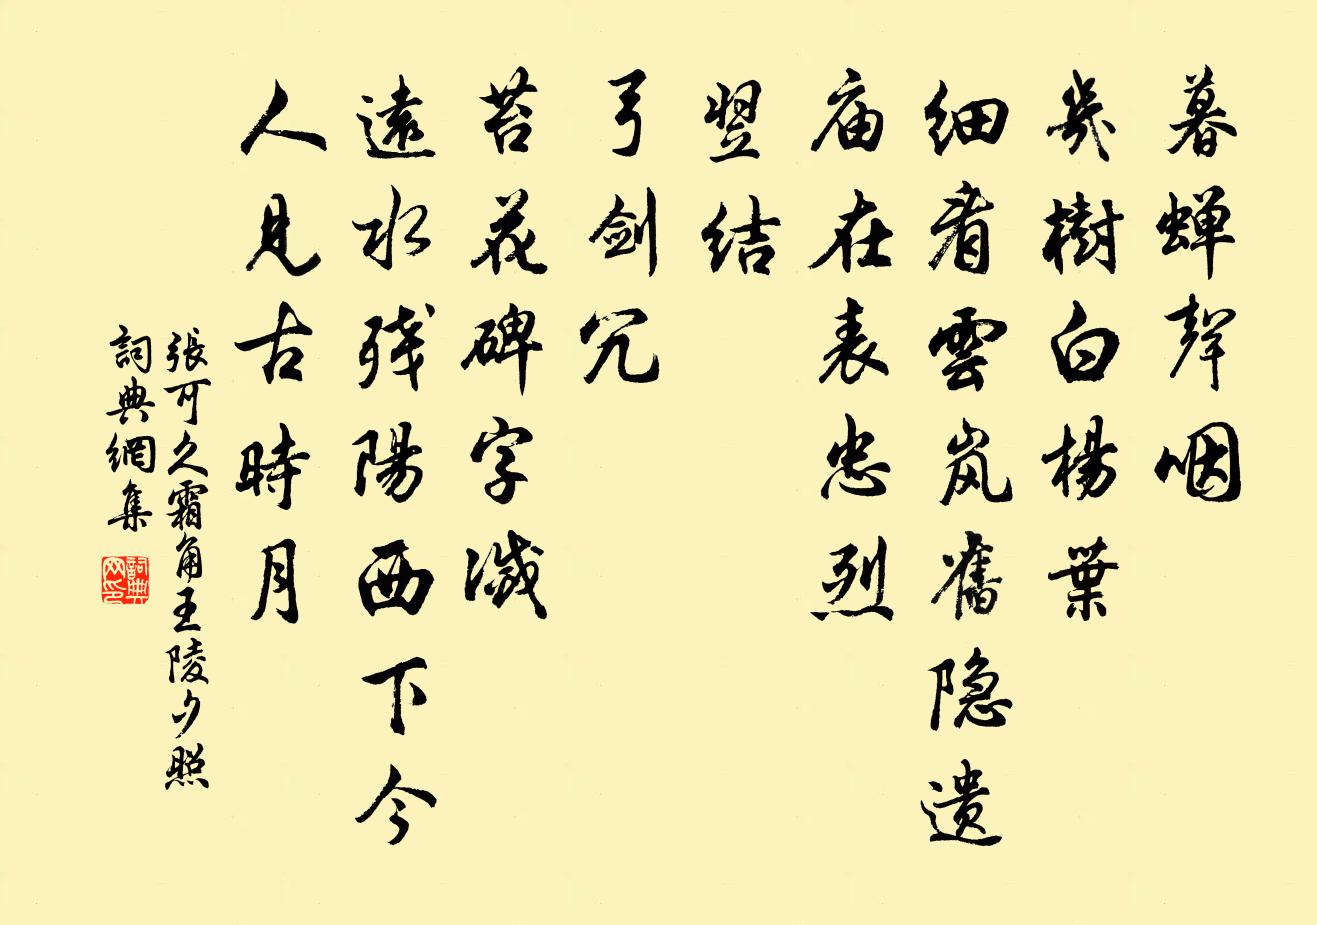 暮蝉聲咽
幾樹白楊葉
细看雲岚舊隐遗
庙在表忠烈
翌结
弓剑冗
苔花碑字滅
遠水残陽西下今
人見古時月
張可久霜角王陵夕照
詞典網集
詞典网印